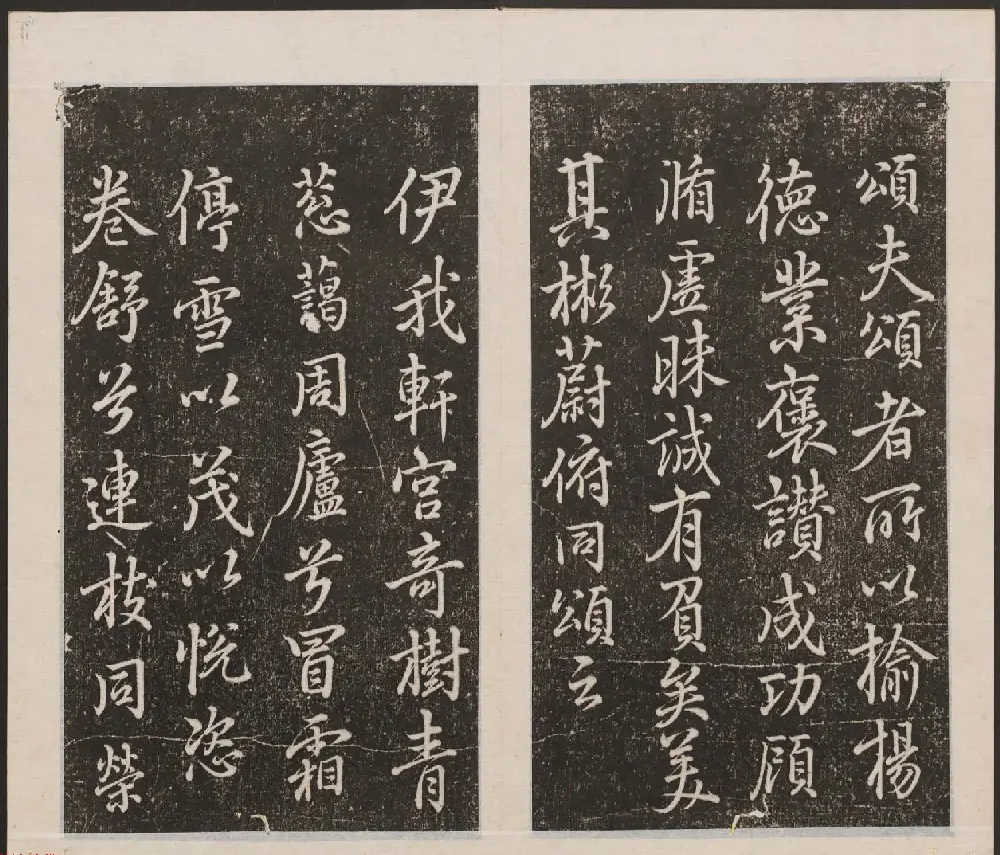 頌夫頌者所以揄楊
德業褒讚成功顧
循虛昧誠有負矣美
其彬蔚俯同頌云
伊我軒宮奇樹青
蔥藹周廬兮冒霜
停雪以茂以悅恣
卷舒兮連枝同榮